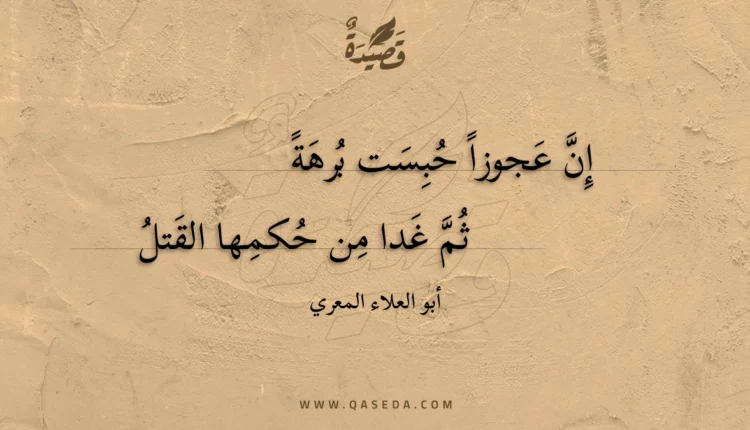 قَصِيدَةٌ
إِنَّ عَجوزاً حُبِسَت بُرهَةً
ثُمَّ غَدا مِن حُكمِها القَتلُ
أبو العلاء المعري
WWW.QASEDA.COM